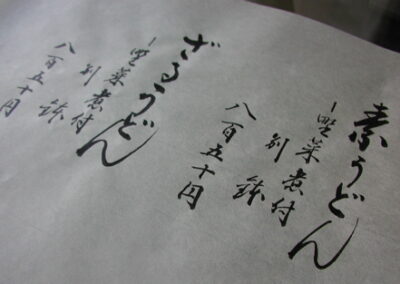 素うどん
ー野菜煮付
別鉢
八百五十円
ざるうどん
ー野菜煮付
別鉢
八百五十円